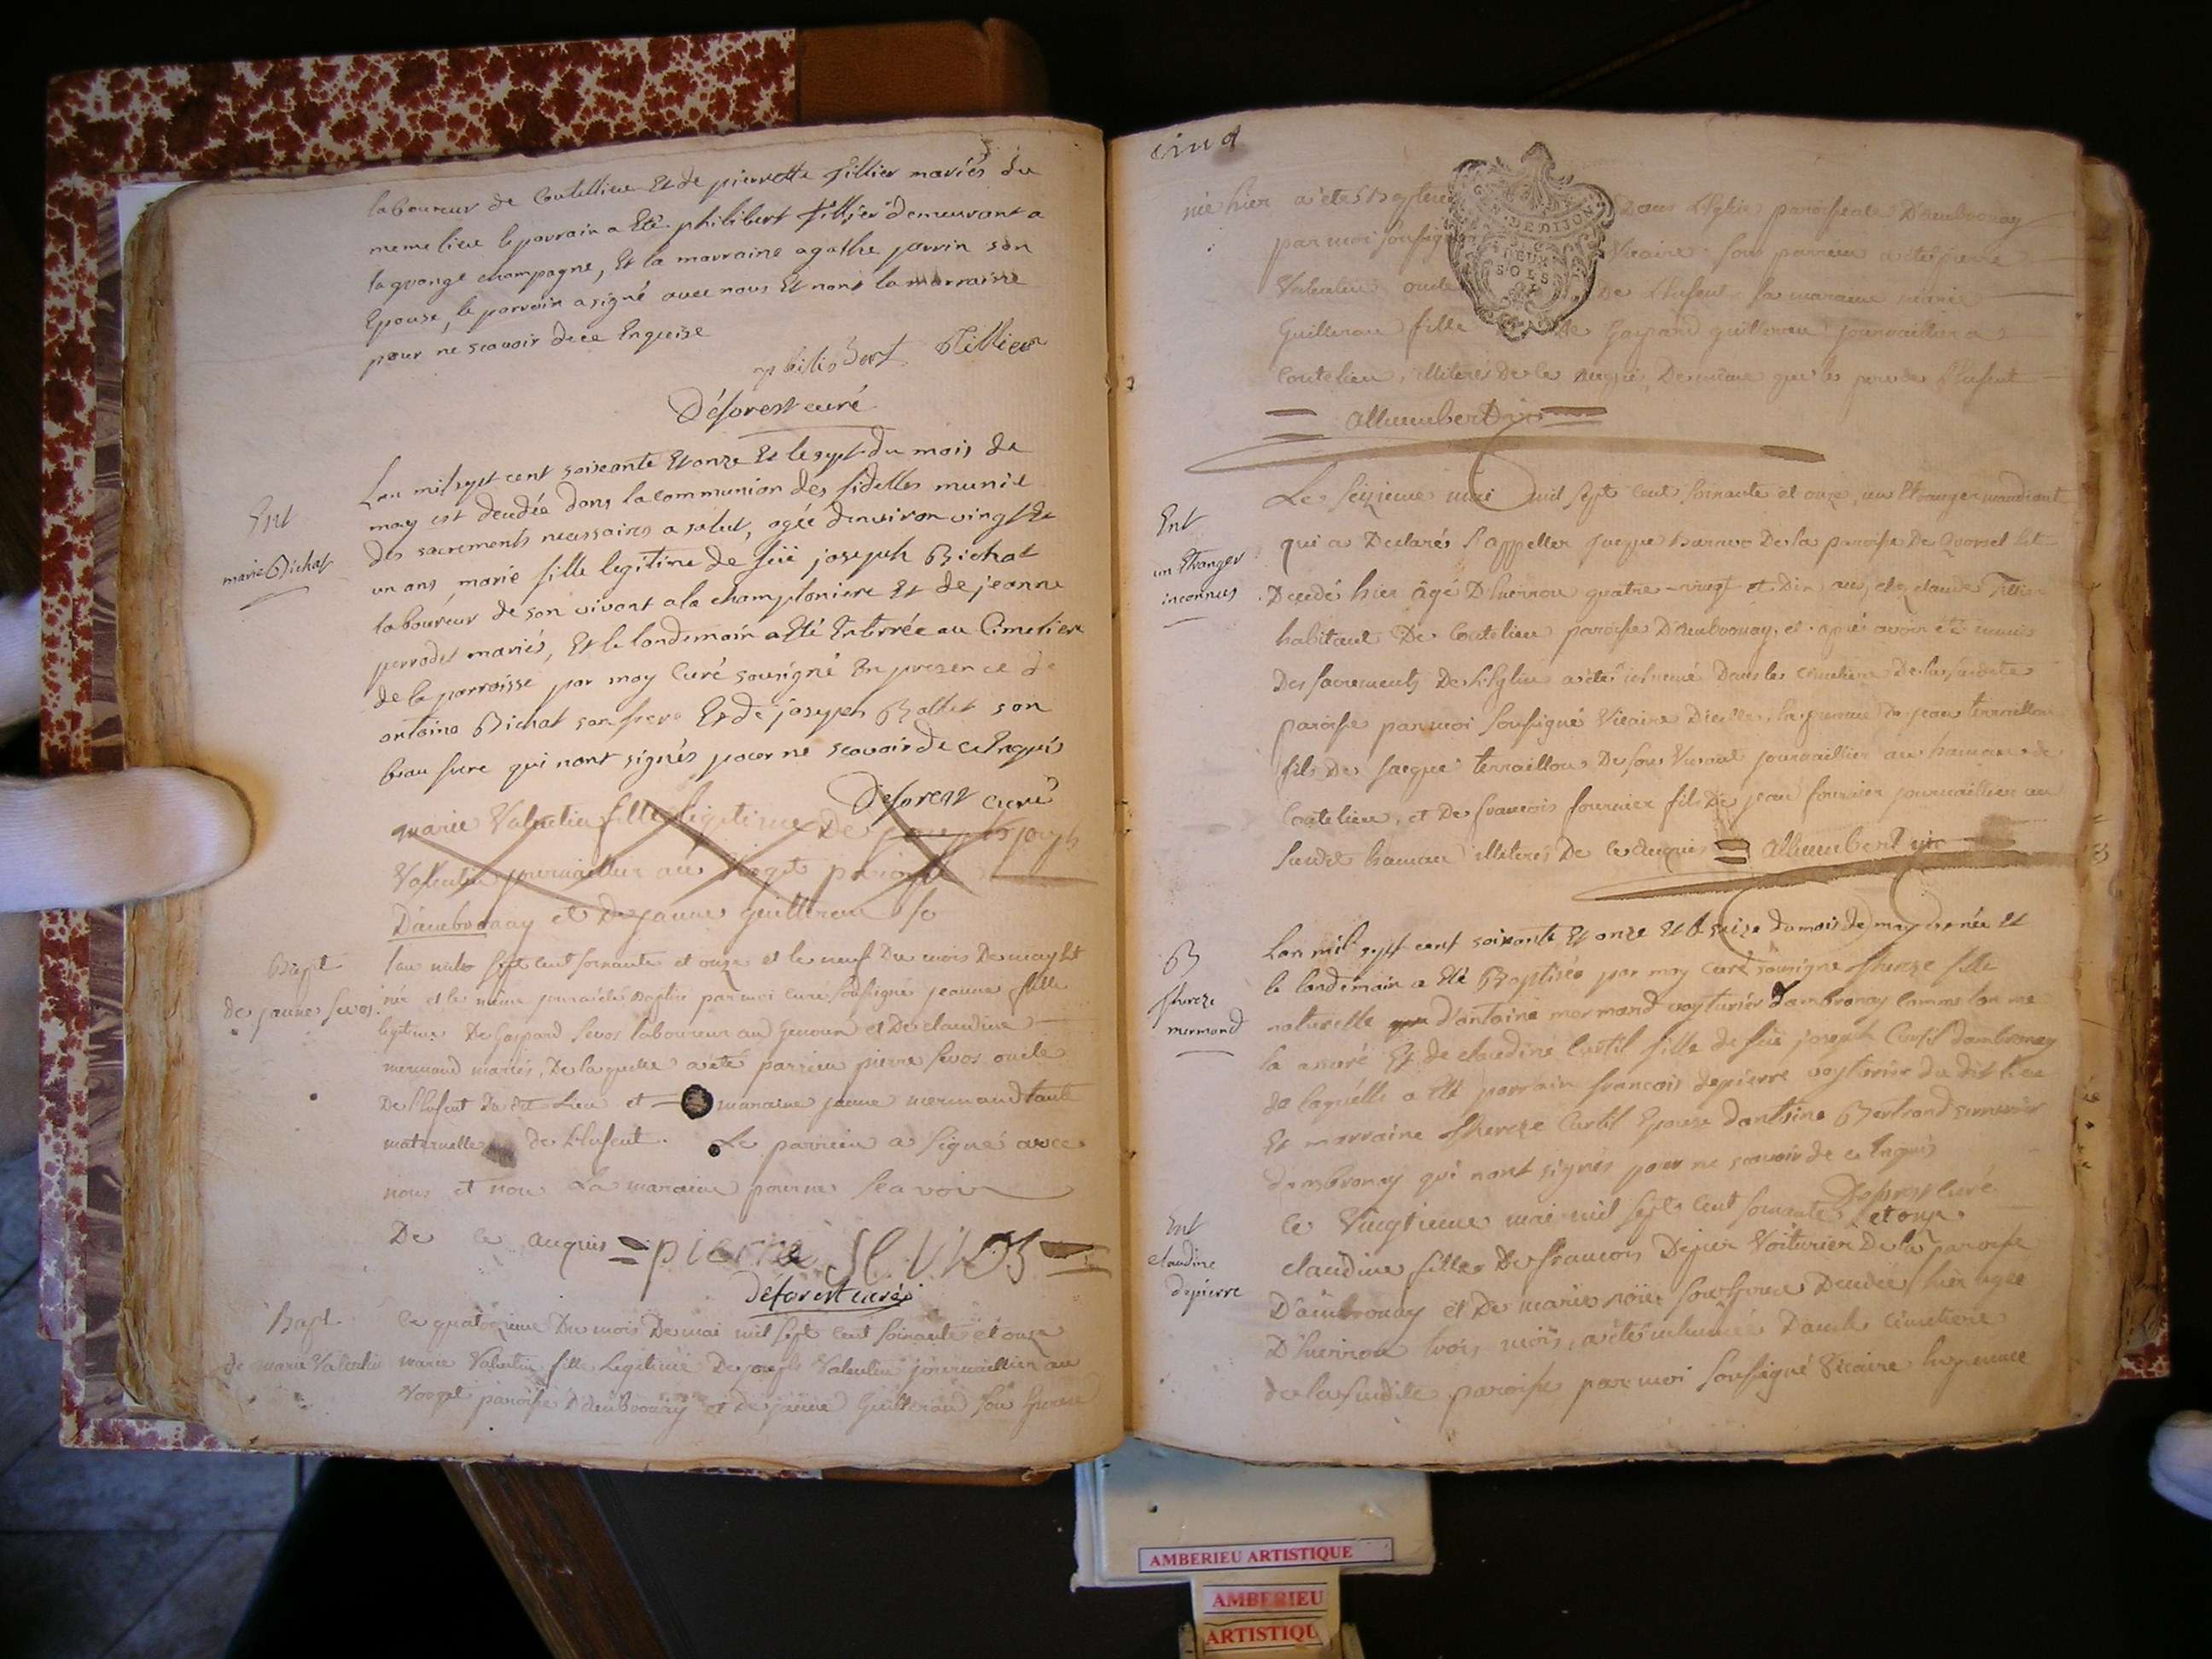 laboureur de Coutellieu Et de pierrette tillier mariés du
meme lieu le parrain a Eté philibert tillier demeurant a
la grange champagne, Et la marraine agathe jannin son
Epouse, le parrain a signé avec nous Et non la marraine
pour ne scavoir de ce Enquise
philibert tillier
Déforest curé
Ent
marie Bichat
Lan mil sept cent soixante Et onze Et le sept du mois de
may est decedée dans la communion des fidelles munie
des sacrements necessaires a salut, agée denviron vingt et
un ans, marie fille legitime de feü joseph Bichat
laboureur de son vivant a la champloniere Et de jeanne
perrodet mariés, Et le landemain a Eté Enterrée au Cimetiere
de la parroisse par moy Curé sousigné En presence de
antoine Bichat son frere Et de joseph Ballet son
beau frere qui nont signés pour ne scavoir de ce Enquis
Deforest curé
marie Valentin fille legitime De joseph
Valentin journaillier au paroisse
D'ambronay et De jeanne guilleran
Bapt
de jeanne sevos
lan mil sept cent soixante et onze et le neuf Du mois De may Est
née et le même jour a été Baptisée par moi curé soussigné jeanne fille
legitime De Gaspard sevos laboureur au Genoux et De claudine
mermand mariés, De laquelle a été parrein pierre sevos oncle
De l'enfent du dit Lieu et maraine jeanne mermand tante
maternelle de L'enfent. Le parrein a Signé avec
nous et non La maraine pour ne Scavoir
De ce enquis = pierre SeVVOS =
déforest curé
Bapt.
de marie Valentin
Ce quatorzieme Du mois De mai mil sept cent soixante et onze
marie Valentin fille Legitime De joseph Valentin journaillier au
paroisse D'ambronay et De jeanne Guilleraud son Epouse
cinq
née hier a été Baptisée Dans L'église paroissiale D'ambronay
par moi soussigné Vicaire son parrein a été pierre
Valentin oncle De L'enfent sa maraine marie
Guilleran fille de Gaspard guilleran journaillier a
Coutelieu, illiterés De ce enquis, De même que le pere de L'enfent
G N DE DIJON
DEUX
SOLS
= allumbert vic =
Ent
un Etranger
inconnus
Le seizieme mai mil sept cent soixante et onze, un Etranger mandiant
qui a Declaré s'appeller De la paroisse De Est
Decedé hier âgé D'environ quatre-vingt et Dix ans, chez claude Tillier
habitant De Coutelieu paroisse D'ambronay, et après avoir été muni
Des sacrements De L'Eglise a été inhumé Dans le cimetiere De la susdite
paroisse par moi soussigné Vicaire D'icelle, En presence De jean terraillon
fils De jacque terraillon De son Vivant journaillier au hamau de
Coutelieu, et De francois fournier fils De jean fournier journaillier au
susdit hamau illiterés De ce enquis = allumbert vic
B
therese
mermand
Lan mil sept cent soixante Et onze Et le seize du mois de may est née et
le landemain a Eté Baptisée par moy curé sousigné therese fille
naturelle d'antoine mermand voyturier dambronay comme lon me
la assuré Et de claudine Curtil fille de feü joseph Curtil dambronay
de laquelle a Eté parrain francois depierre voyturier du dit lieu
Et marraine therese Curtil Epouse dantoine Bertrand serrurier
dambronay qui nont signés pour ne scavoir de ce Enquis
Deforest curé
Ent
claudine
depierre
Ce Vingtieme mai mil sept cent soixante et onze
claudine fille De francois Voiturier De la paroisse
D'ambronay et De marie son Epouse Decedée hier agée
D'environ trois mois, a été inhumée Dans le cimetiere
de la susdite paroisse par moi soussigné Vicaire En presence
AMBERIEU ARTISTIQUE
AMBERIEU
ARTISTIQU